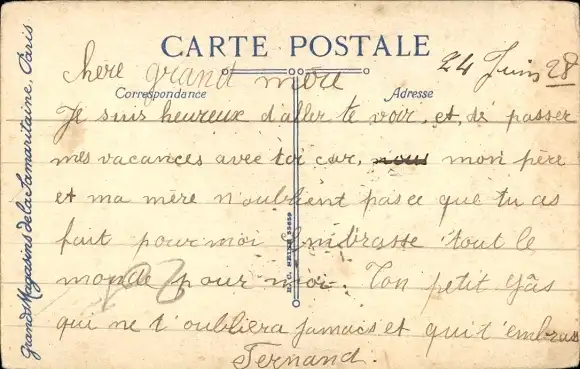 CARTE POSTALE
24 Juin 28
Chere grand mère
Correspondance
Adresse
Je suis heureux d'aller te voir, et, de passer
mes vacances avec toi car, nous mon père
et ma mère n'oublient pas ce que tu as
fait pour moi Embrasse tout le
monde pour moi. Ton petit gâs
qui ne t'oubliera jamais et qui t'embrass
Fernand.
Grands Magasins de la Samaritaine, Paris
R. C. SEINE